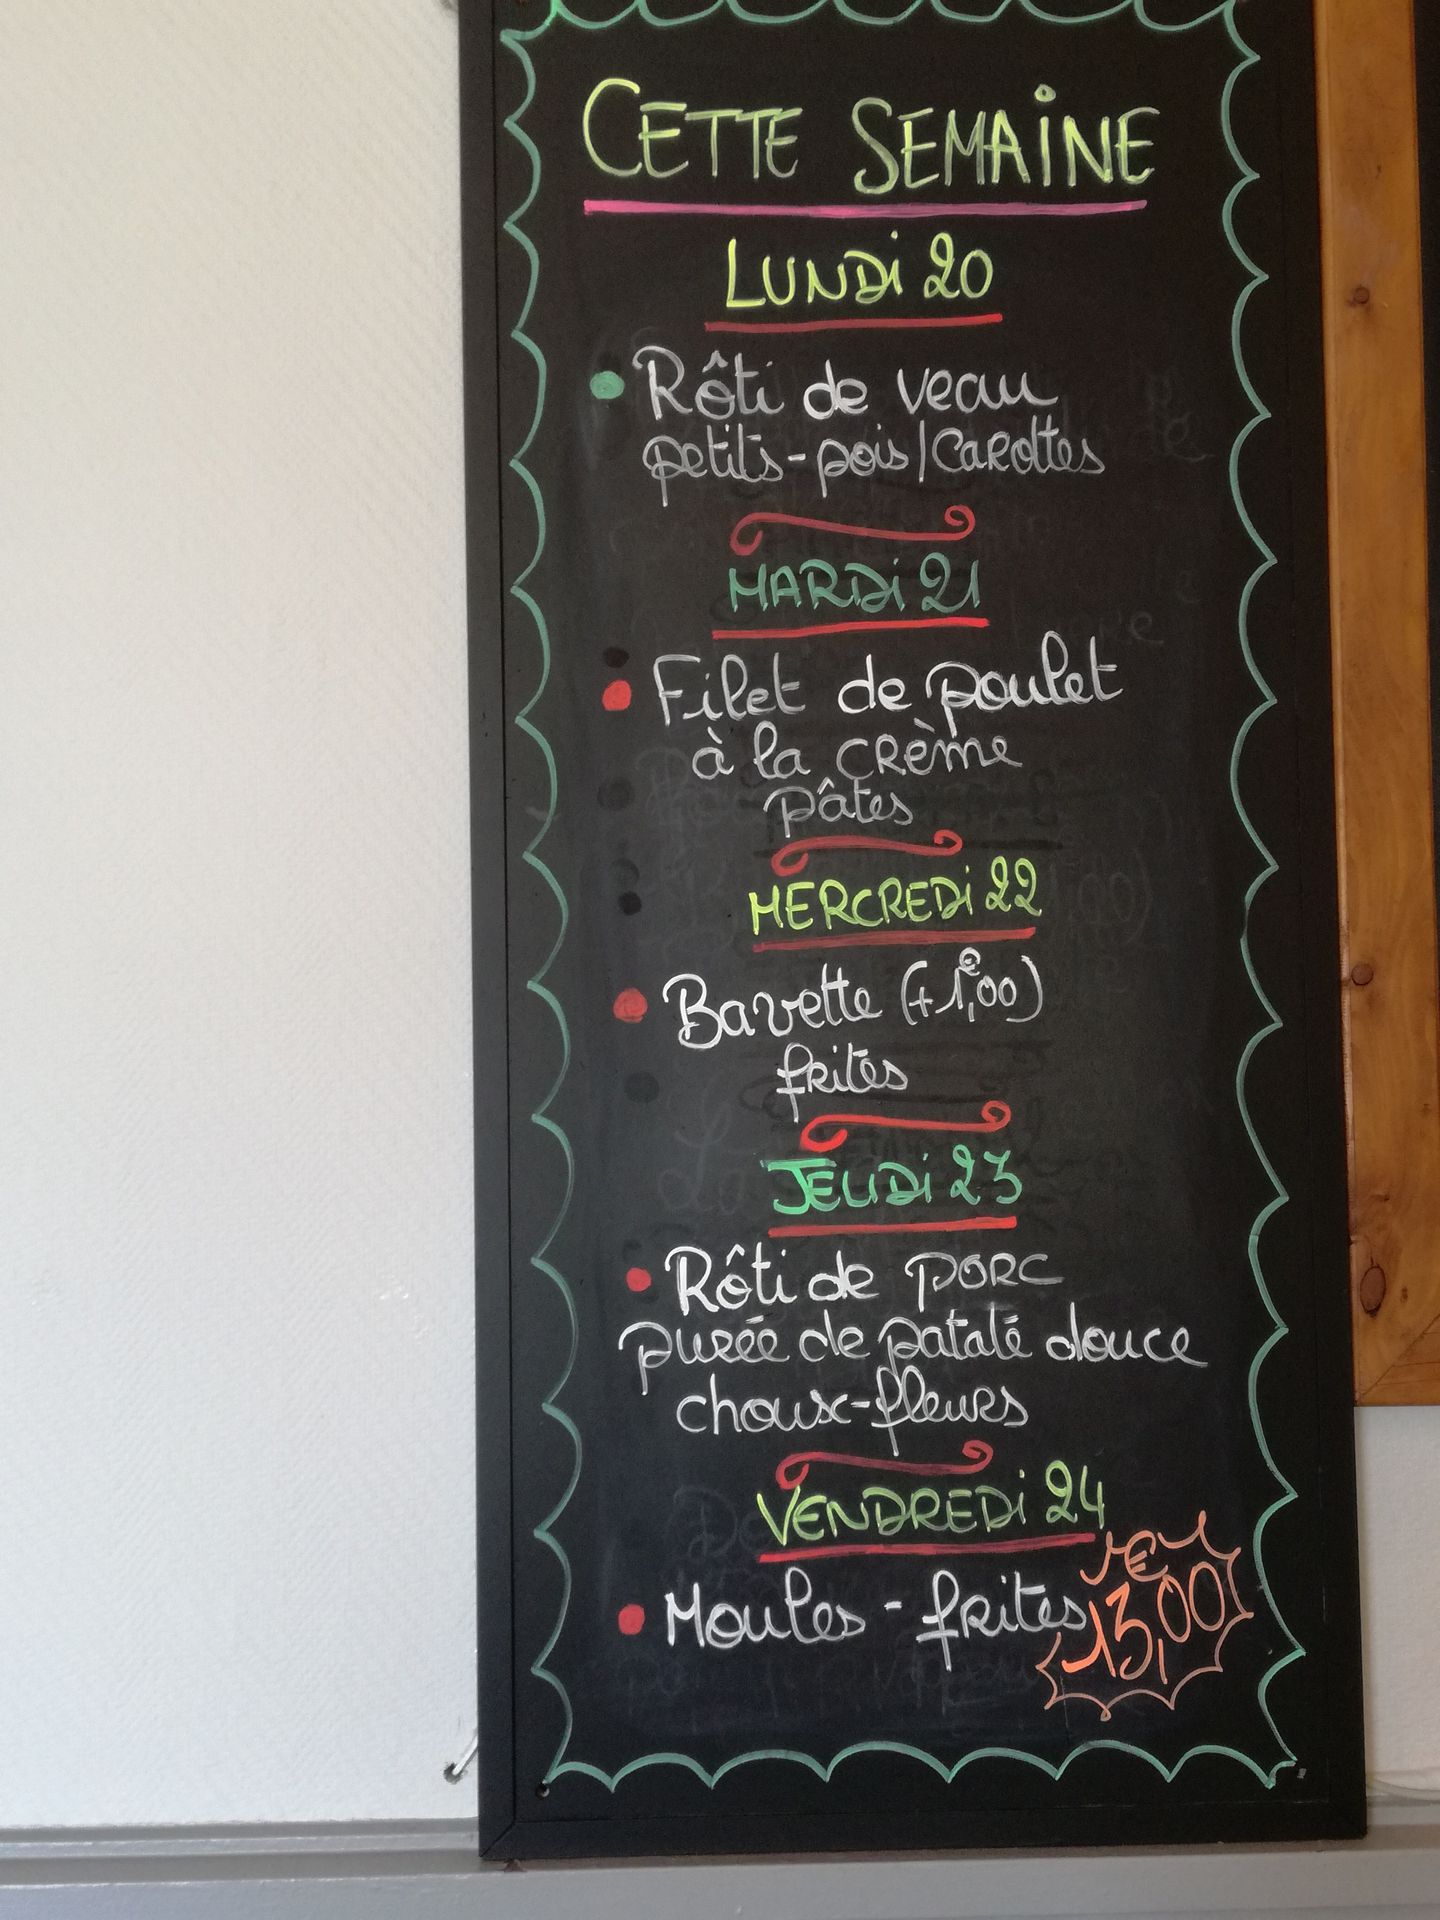 CETTE SEMAINE
LUNDI 20
Rôti de veau
petits-pois/Carottes
MARDI 21
Filet de poulet
à la crème
pâtes
MERCREDI 22
Bavette (+1,€00)
frites
JEUDI 23
Rôti de porc
purée de patate douce
choux-fleurs
VENDREDI 24
Moules - frites
€
13,00